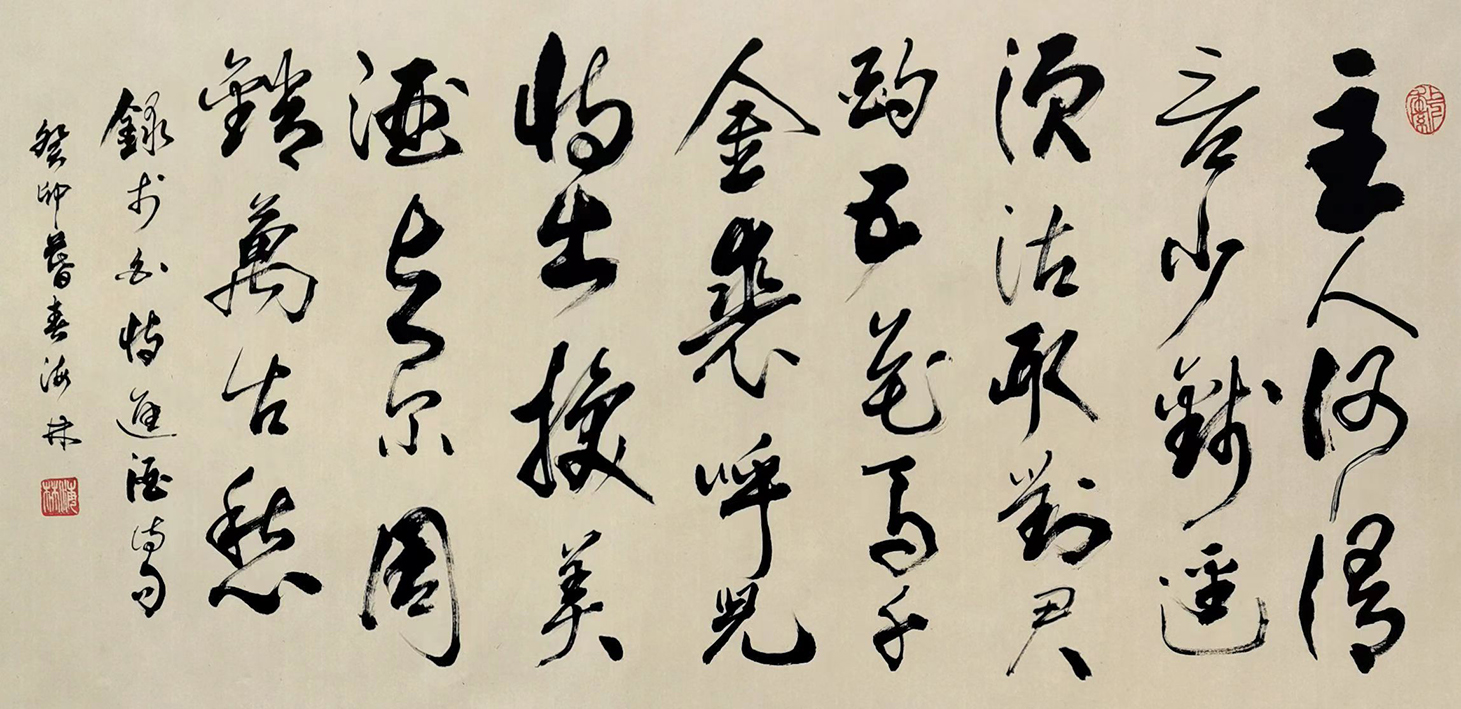 主人何謂
言少錢逕
須沽取對君
酌五花馬千
金裘呼兒
將出換美
酒與尔同
銷萬古愁
錄李白將進酒詩句
癸卯暮春海林
海林